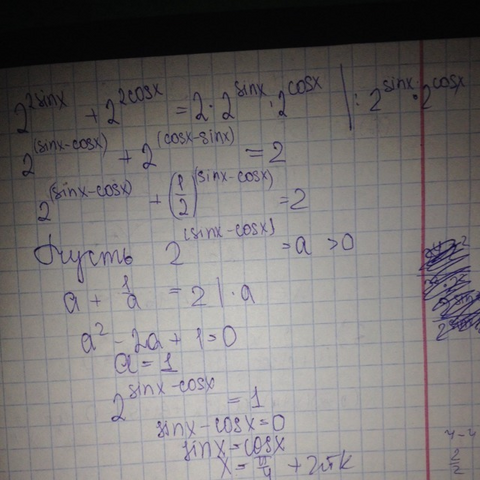 2^{2sinx} + 2^{2cosx} = 2 · 2^{sinx} · 2^{cosx} | : 2^{sinx} · 2^{cosx}
2^{(sinx-cosx)} + 2^{(cosx-sinx)} = 2
2^{(sinx-cosx)} + (1/2)^{(sinx-cosx)} = 2
Пусть 2^{(sinx-cosx)} = a > 0
a + 1/a = 2 | · a
a² - 2a + 1 = 0
a = 1
2^{sinx-cosx} = 1
sinx - cosx = 0
sinx = cosx
x = π/4 + 2πk